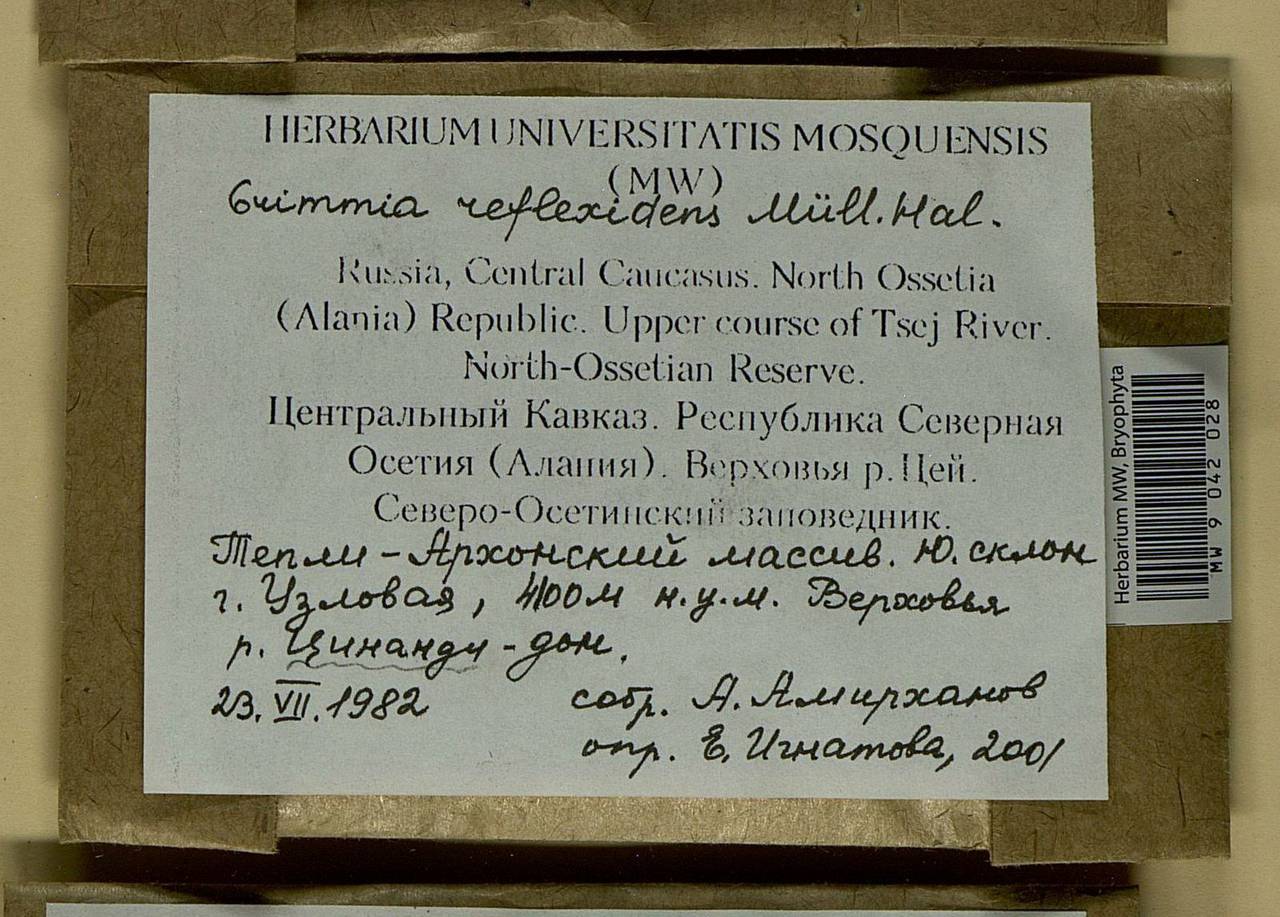 HERBARIUM UNIVERSITATIS MOSQUENSIS
(MW)
Grimmia reflexidens Müll. Hal.
Russia, Central Caucasus. North Ossetia
(Alania) Republic. Upper course of Tsej River.
North-Ossetian Reserve.
Центральный Кавказ. Республика Северная
Осетия (Алания). Верховья р.Цей.
Северо-Осетинский заповедник.
Тепли-Архонский массив. Ю. склон
г. Узловая, 4100м н.у.м. Верховья
р. Цинанди-дон.
23.VII.1982 собр. А. Амирханов
опр. Е. Игнатова, 2001
Herbarium MW, Bryophyta
MW 9 042 028